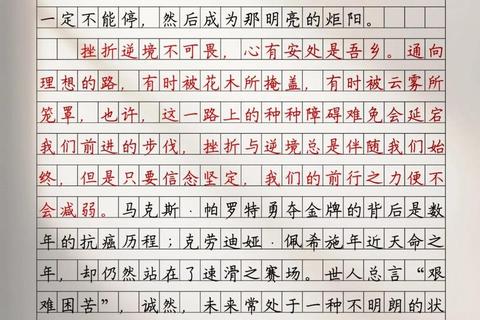 一定不能停，然后成为那明亮的炬阳。
挫折逆境不可畏，心有安处是吾乡。通向
理想的路，有时被花木所掩盖，有时被云雾所
笼罩，也许，这一路上的种种障碍难免会延宕
我们前进的步伐，挫折与逆境总是伴随我们始
终，但是只要信念坚定，我们的前行之力便不
会减弱。马克斯·帕罗特勇夺金牌的背后是数
年的抗癌历程；克劳迪娅·佩希施年近天命之
年，却仍然站在了速滑之赛场。世人总言“艰
难困苦”，诚然，未来常处于一种不明朗的状